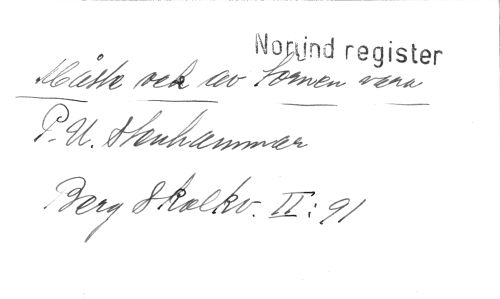 Norind register
Måste vek av tornen vara
P. U. Stenhammar
Berg Skolkv. II: 91